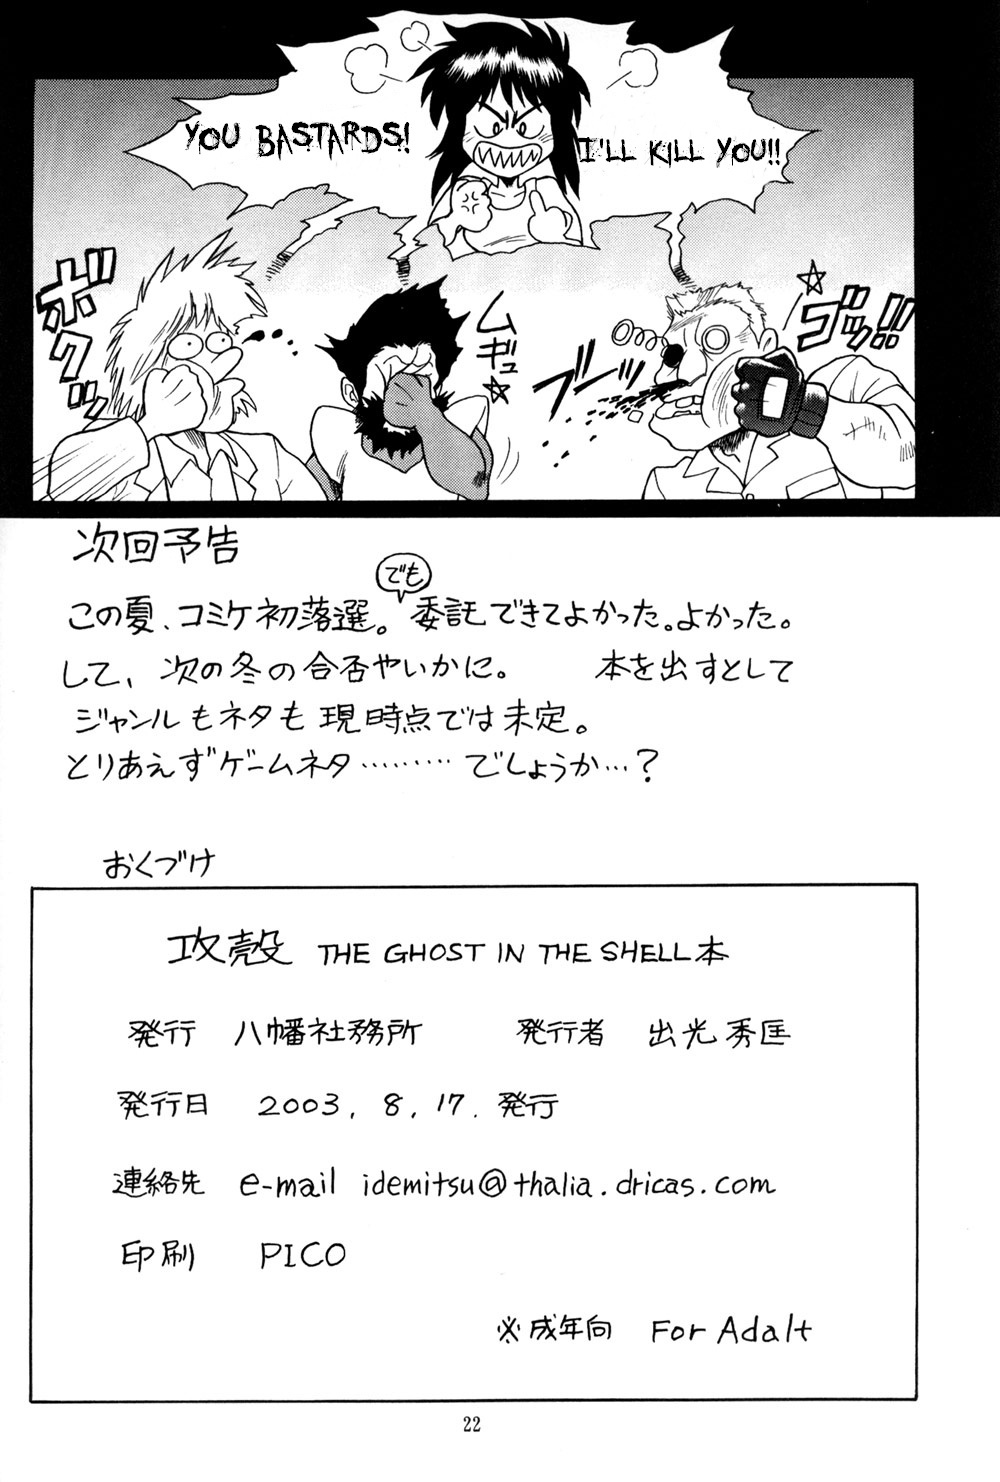 YOU BASTARDS!
I'LL KILL YOU!!
ボクッ
ムギュ☆
ブーッ
ゴッ!!
次回予告
でも
この夏、コミケ初落選。委託できてよかった。よかった。
して、次の冬の合否やいかに。 本を出すとして
ジャンルもネタも現時点では未定。
とりあえずゲームネタ………でしょうか…?
おくづけ
攻殻 THE GHOST IN THE SHELL本
発行 八幡社務所 発行者 出光秀匡
発行日 2003. 8. 17. 発行
連絡先 e-mail idemitsu@thalia.dricas.com
印刷 PICO
※成年向 For Adalt
22